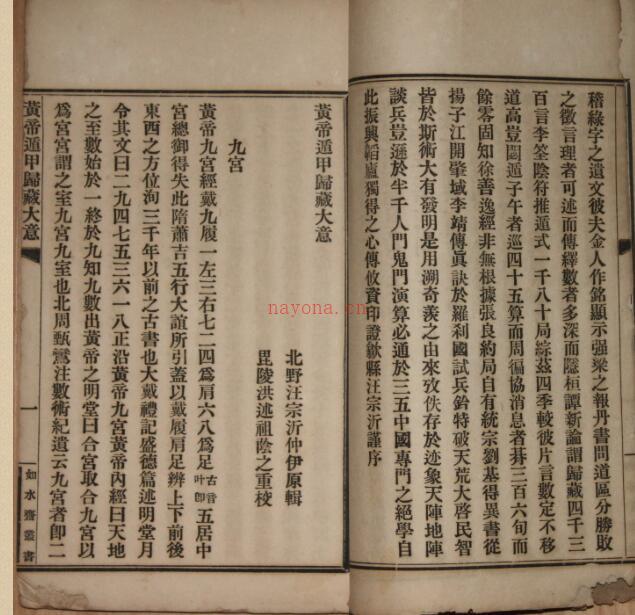 稽祿字之遺文彼夫金人作銘顯示强梁之報丹書問道區分勝敗
之徵言理者可述而傳繹數者多深而隱桓譚新論謂歸藏四千三
百言李筌陰符推遁式一千八十局綜茲四季較彼片言數定不移
道高豈閟遁子午者巡四十五算而周徧協消息者朞三百六旬而
餘零固知徐善逸經非無根據張良約局自有統宗劉基得異書從
揚子江開肇域李靖傳眞訣於羅刹國試兵鈐特破天荒大啓民智
皆於斯術大有發明是用溯奇羨之由來攷佚存於迹象天陣地陣
談兵豈遜於半千人門鬼門演算必通於三五中國專門之絕學自
此振興韜廬獨得之心傳攸資印證歙縣汪宗沂謹序
黃帝遁甲歸藏大意
北野汪宗沂仲伊原輯
毘陵洪述祖蔭之重校
九宮
黃帝九宮經戴九履一左三右七二四爲肩六八爲足古音叶卽五居中
宮總御得失此隋蕭吉五行大誼所引蓋以戴履肩足辨上下前後
東西之方位洵三千年以前之古書也大戴禮記盛德篇述明堂月
令其文曰二九四七五三六一八正沿黃帝九宮黃帝內經曰天地
之至數始於一終於九知九數出黃帝之明堂曰合宮取合九宮以
爲宮宮謂之室九宮九室也北周甄鸞注數術紀遺云九宮者卽二
黃帝遁甲歸藏大意
一
如水齋叢書
nayona.cn